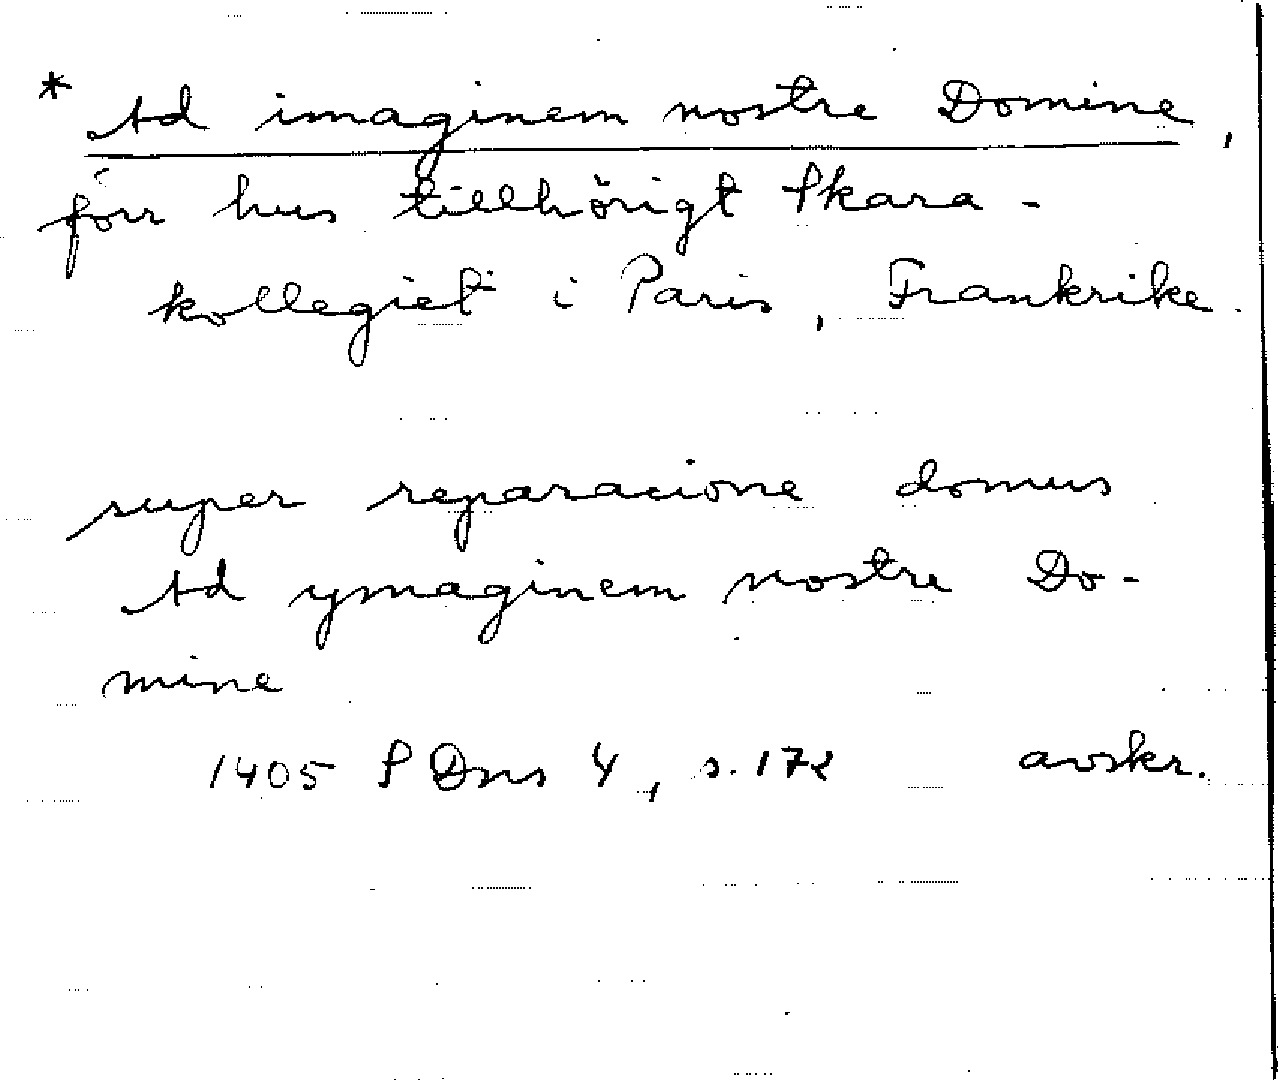 * Ad imaginem nostre Domine,
förr hus tillhörigt Skara-
kollegiet i Paris, Frankrike.
super reparacione domus
Ad ymaginem nostre Do-
mine
1405 SDns 4, s. 172 avskr.